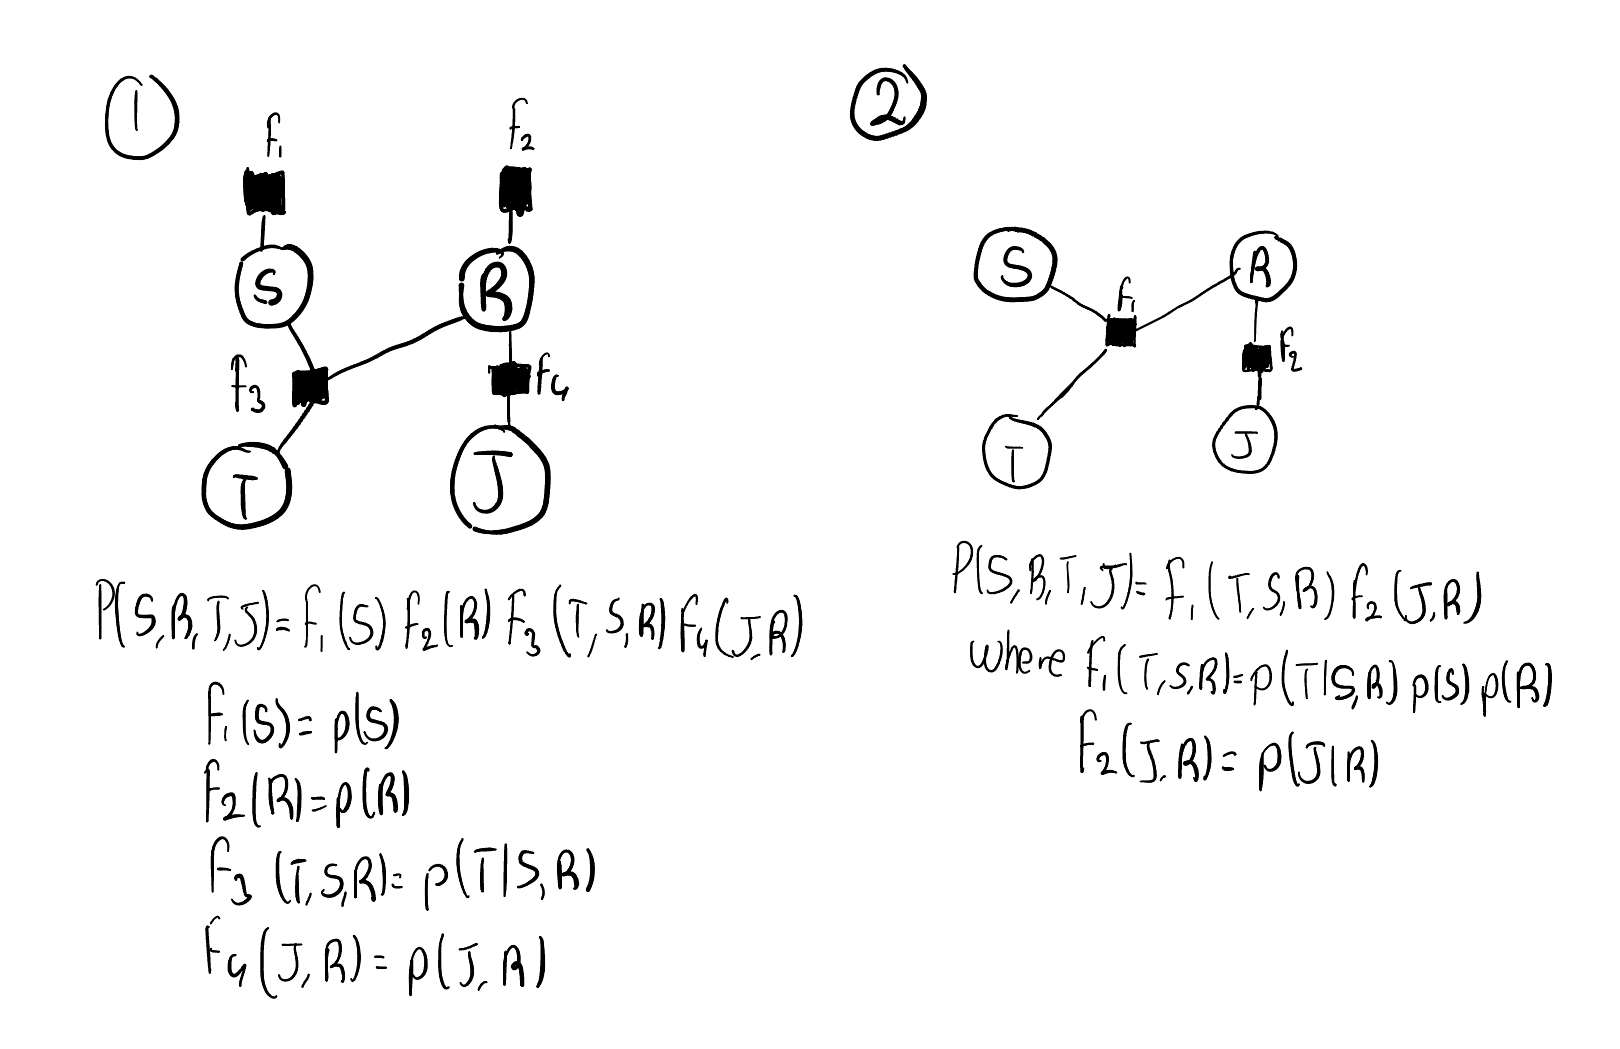 1
f₁ f₂
S R
f₃ f₄
T J
P(S,R,T,J)= f₁(S) f₂(R) f₃(T,S,R) f₄(J,R)
f₁(S)= p(S)
f₂(R)=p(R)
f₃(T,S,R)= p(T|S,R)
f₄(J,R)= p(J,R)
2
S R
f₁
f₂
T J
P(S,R,T,J)= f₁(T,S,R) f₂(J,R)
where f₁(T,S,R)=p(T|S,R) p(S) p(R)
f₂(J,R)= p(J|R)